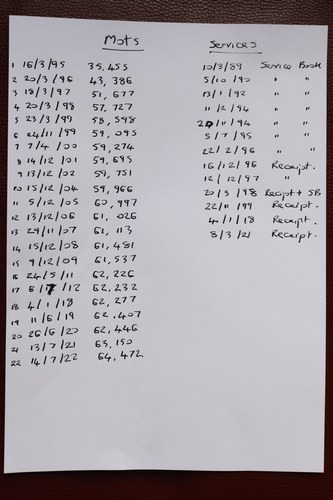 Mots
1 16/3/95 35,455
2 20/3/96 43,386
3 18/3/97 51,677
4 20/3/98 57,727
5 23/3/99 58,598
6 24/11/99 59,095
7 7/4/00 59,274
8 14/12/01 59,695
9 13/12/02 59,751
10 15/12/04 59,966
11 5/12/05 60,997
12 13/12/06 61,026
13 29/11/07 61,113
14 15/12/08 61,481
15 9/12/09 61,537
16 24/5/11 62,226
17 6/7/12 62,232
18 4/1/18 62,277
19 11/6/19 62,407
20 26/6/20 62,446
21 13/7/21 63,150
22 14/7/22 64,472
Services
10/3/89 Service Book
5/10/90 " "
13/1/92 " "
11/2/94 " "
20/11/94 " "
5/7/95 " "
22/2/96 " "
16/12/96 Receipt.
12/12/97 "
20/3/98 Receipt + SB
22/11/99 Receipt.
4/1/18 Receipt.
8/3/21 Receipt.